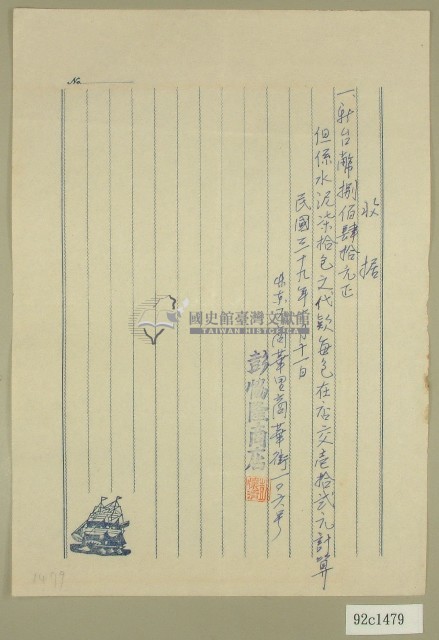 收據
一、新台幣捌佰肆拾元正
但係水泥柒拾包之代款每包在店交壹拾弍元計算
民國三十九年 月十一日
東 里商華街一〇六号
彭 隆商店
國史館臺灣文獻館
TAIWAN HISTORICA
No.
1479
92c1479